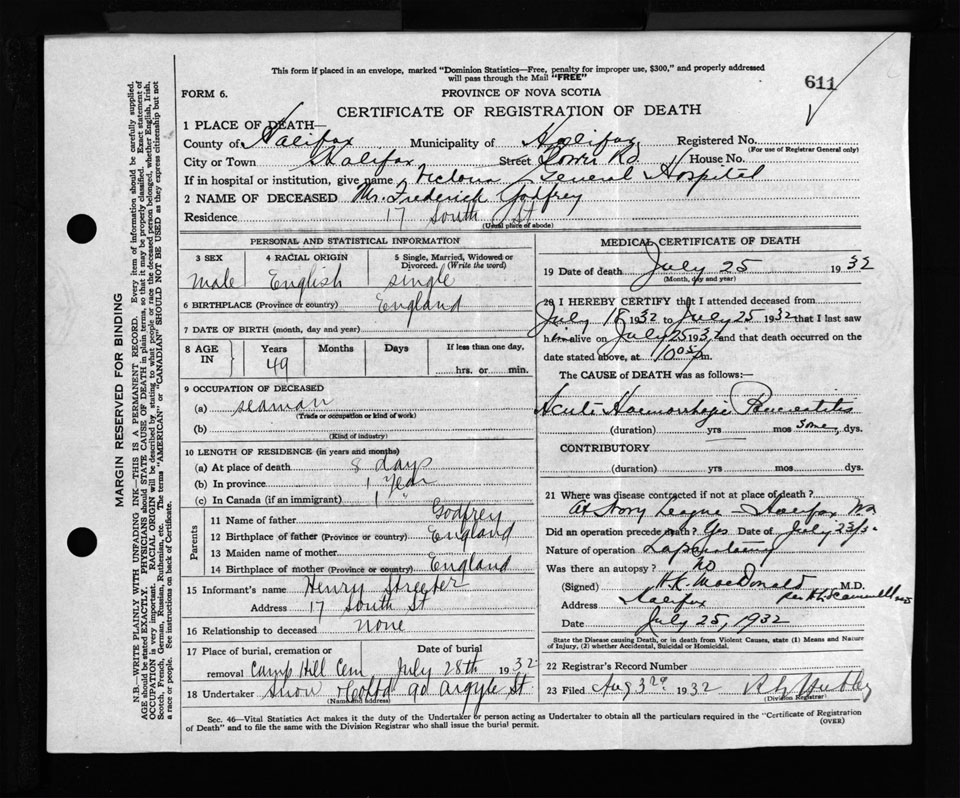 This form if placed in an envelope, marked "Dominion Statistics—Free, penalty for improper use, $300," and properly addressed
will pass through the Mail "FREE"
611
FORM 6.
PROVINCE OF NOVA SCOTIA
CERTIFICATE OF REGISTRATION OF DEATH
1 PLACE OF DEATH—
County of Halifax Municipality of Halifax Registered No.
(For use of Registrar General only)
City or Town Halifax Street Tower Rd House No.
If in hospital or institution, give name Victoria General Hospital
2 NAME OF DECEASED Mr. Frederick Godfrey
Residence 17 South St
(Usual place of abode)
PERSONAL AND STATISTICAL INFORMATION
3 SEX 4 RACIAL ORIGIN 5 Single, Married, Widowed or
Divorced. (Write the word)
male English single
6 BIRTHPLACE (Province or country) England
7 DATE OF BIRTH (month, day and year)
8 AGE IN Years Months Days If less than one day,
49 hrs. or min.
9 OCCUPATION OF DECEASED
(a) seaman
(Trade or occupation or kind of work)
(b)
(Kind of industry)
10 LENGTH OF RESIDENCE (in years and months)
(a) At place of death 8 days
(b) In province 1 year
(c) In Canada (if an immigrant) 1 "
Parents
11 Name of father Godfrey
12 Birthplace of father (Province or country) England
13 Maiden name of mother
14 Birthplace of mother (Province or country) England
15 Informant's name Henry Streeter
Address 17 South St
16 Relationship to deceased none
17 Place of burial, cremation or Date of burial
removal Camp Hill Cem July 28th 1932
18 Undertaker Snow & Co Ltd 90 Argyle St
(Name and address)
MEDICAL CERTIFICATE OF DEATH
19 Date of death July 25 1932
(Month, day and year)
20 I HEREBY CERTIFY that I attended deceased from
July 18 1932 to July 25 1932 that I last saw
him alive on July 25 1932 and that death occurred on the
date stated above, at 1005 m.
The CAUSE of DEATH was as follows:—
Acute Haemorrhagic Pancreatitis
(duration) yrs mos some dys.
CONTRIBUTORY
(duration) yrs mos dys.
21 Where was disease contracted if not at place of death?
At Navy League — Halifax NS
Did an operation precede death? Yes Date of July 23/32
Nature of operation Laparotomy
Was there an autopsy? No
(Signed) H.K. MacDonald M.D.
Address Halifax
Date July 25, 1932
State the Disease causing Death, or in death from Violent Causes, state (1) Means and Nature
of Injury, (2) whether Accidental, Suicidal or Homicidal.
22 Registrar's Record Number
23 Filed Aug 3rd 1932
(Division Registrar)
Sec. 46—Vital Statistics Act makes it the duty of the Undertaker or person acting as Undertaker to obtain all the particulars required in the "Certificate of Registration
of Death" and to file the same with the Division Registrar who shall issue the burial permit.
(OVER)
MARGIN RESERVED FOR BINDING
N.B.—WRITE PLAINLY WITH UNFADING INK—THIS IS A PERMANENT RECORD. Every item of information should be carefully supplied.
AGE should be stated EXACTLY. PHYSICIANS should STATE CAUSE OF DEATH in plain terms, so that it may be properly classified. Exact statement of
OCCUPATION is very important. RACIAL ORIGIN will be described by stating to what people or race the deceased person belonged, whether English, Irish,
Scotch, French, German, Russian, Ruthenian, etc. The terms "AMERICAN" or "CANADIAN" SHOULD NOT BE USED as they express citizenship but not
a race or people. See instructions on back of Certificate.